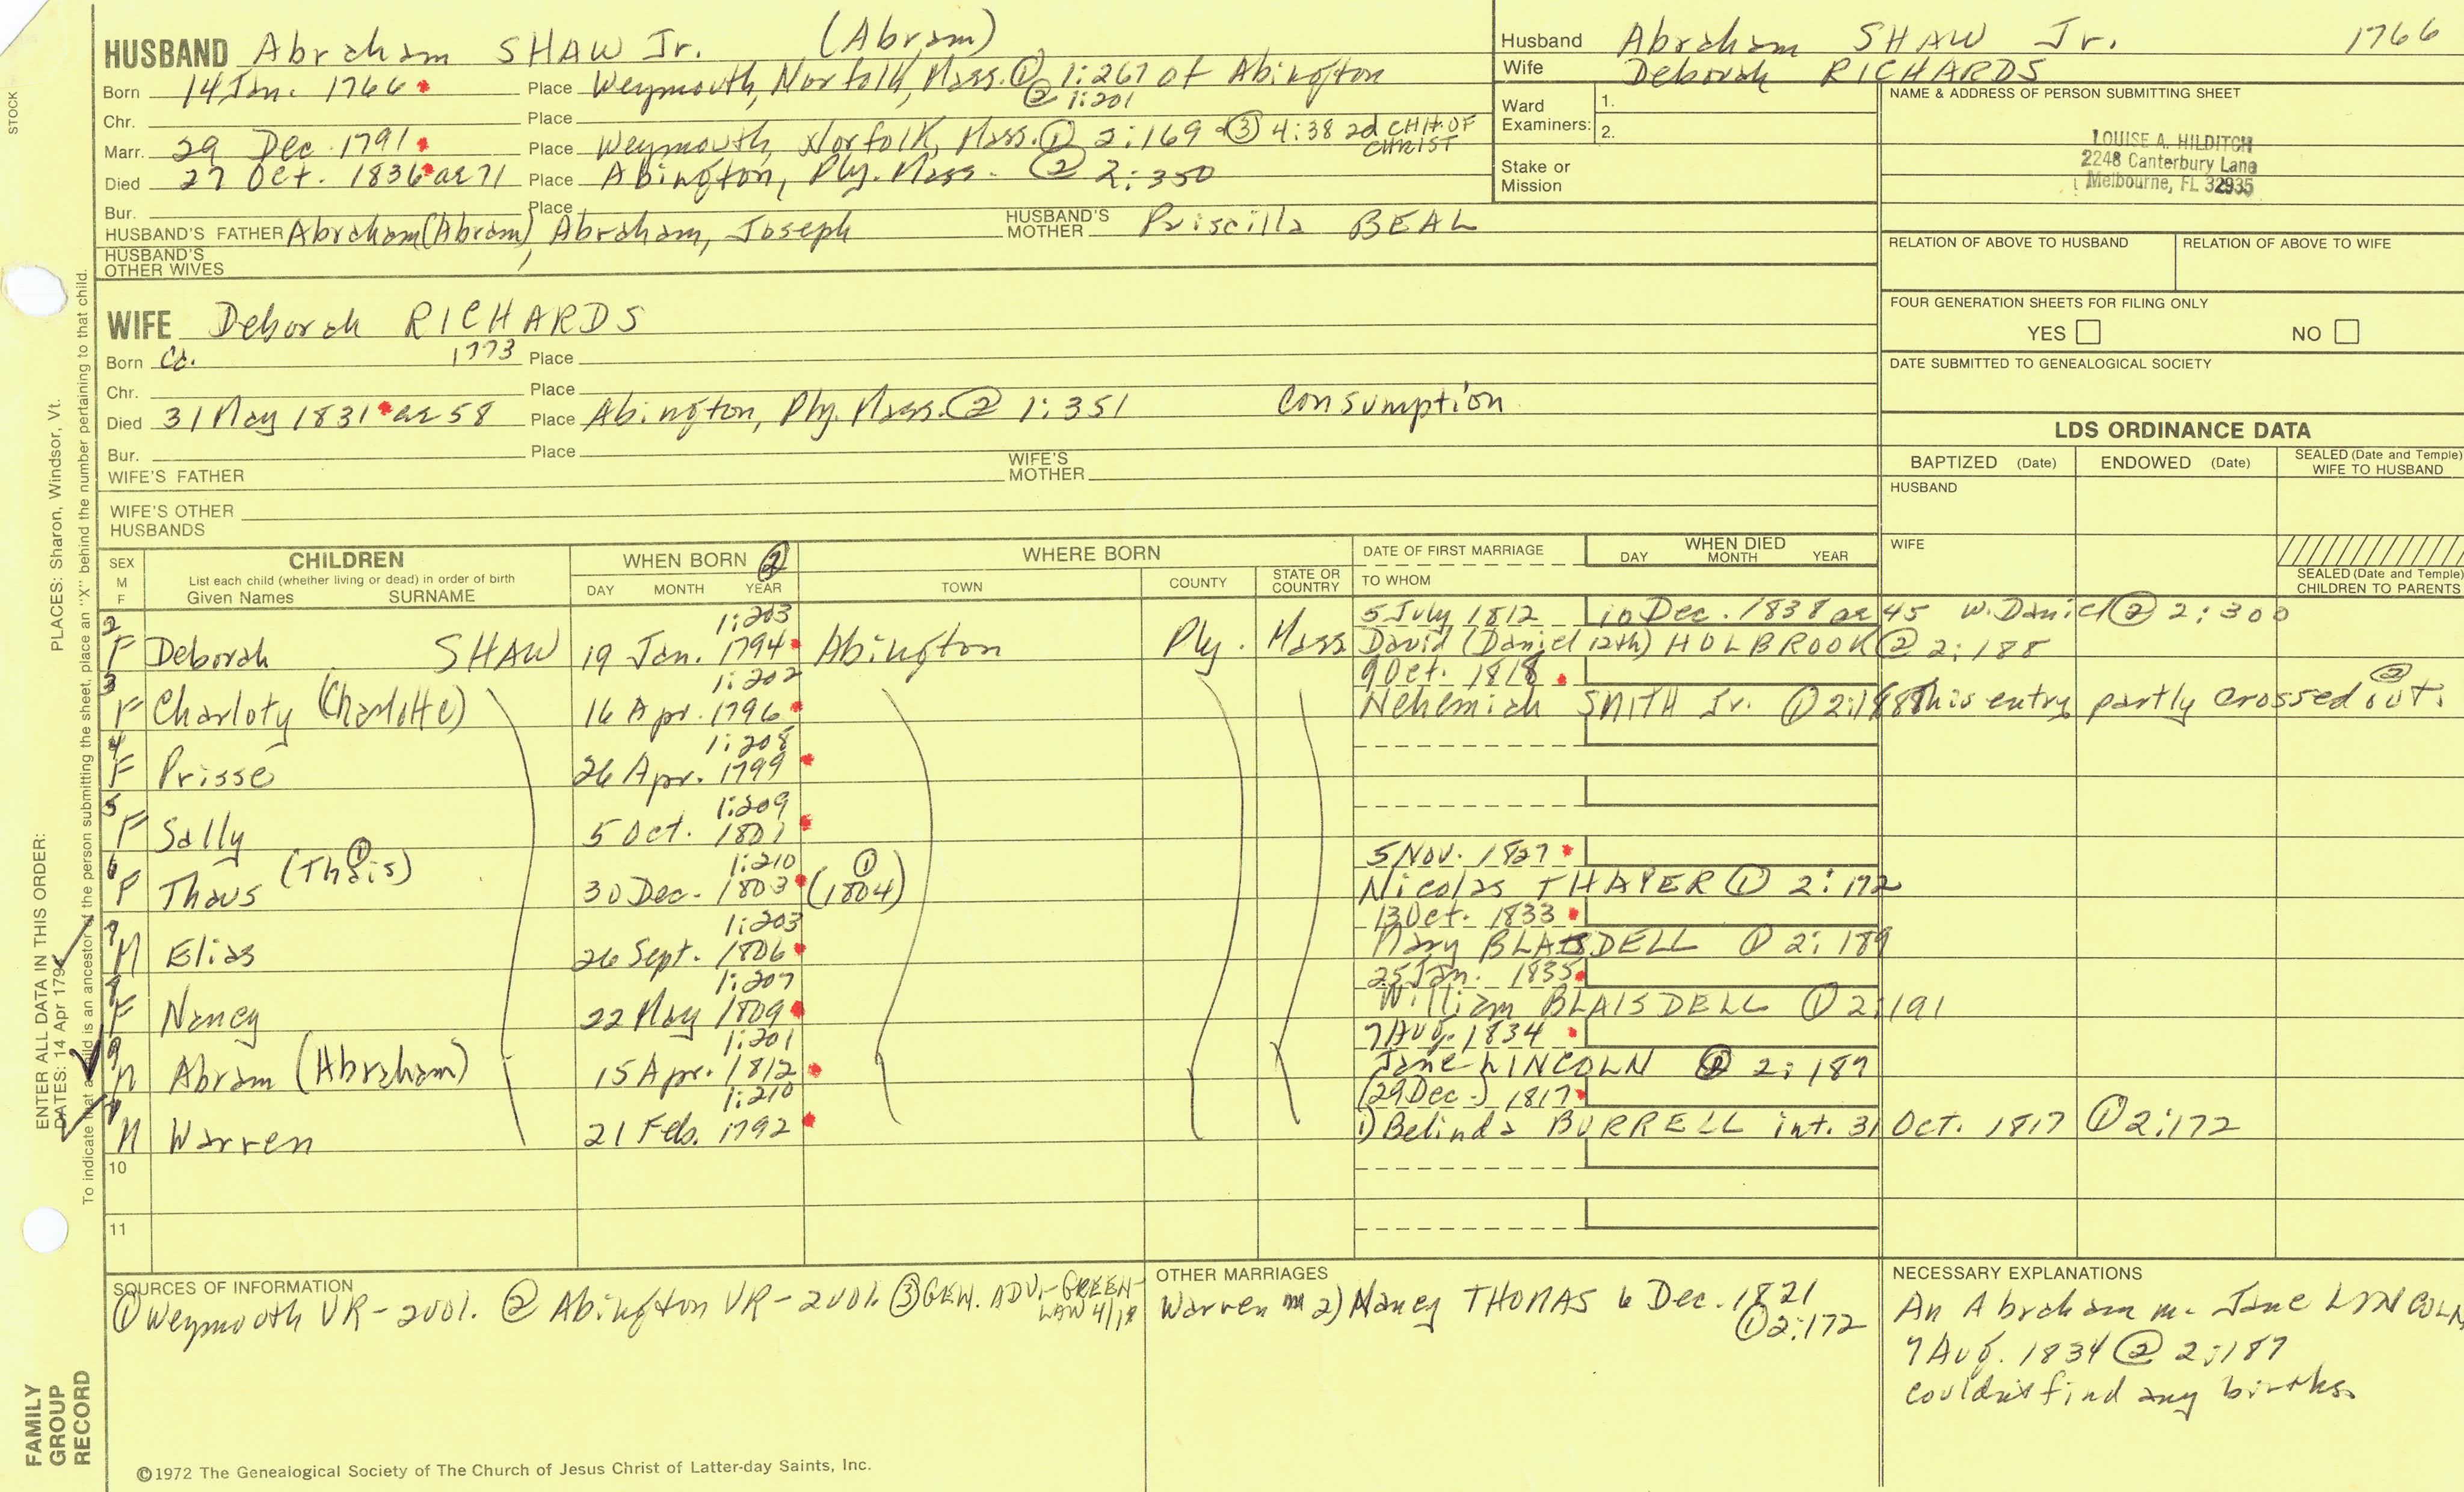 HUSBAND Abraham SHAW Jr. (Abram)
Born 14 Jan. 1766 Place Weymouth, Norfolk, Mass. ① 1:267 of Abington
② 1:201
Chr. Place
Marr. 29 Dec. 1791 Place Weymouth, Norfolk, Mass. ① 2:169 ③ 4:38 2d CHH. OF CHRIST
Died 27 Oct. 1836 ae 71 Place Abington, Ply. Mass. ② 2:350
Bur. Place
HUSBAND'S FATHER Abraham (Abram), Abraham, Joseph HUSBAND'S MOTHER Priscilla BEAL
HUSBAND'S OTHER WIVES
Husband Abraham SHAW Jr. 1766
Wife Deborah RICHARDS
Ward Examiners: 1.
2.
Stake or Mission
NAME & ADDRESS OF PERSON SUBMITTING SHEET
LOUISE A. HILDITCH
2248 Canterbury Lane
Melbourne, FL 32935
RELATION OF ABOVE TO HUSBAND RELATION OF ABOVE TO WIFE
FOUR GENERATION SHEETS FOR FILING ONLY
YES NO
DATE SUBMITTED TO GENEALOGICAL SOCIETY
WIFE Deborah RICHARDS
Born Ca. 1773 Place
Chr. Place
Died 31 May 1831 ae 58 Place Abington, Ply. Mass. ② 1:351 Consumption
Bur. Place
WIFE'S FATHER WIFE'S MOTHER
WIFE'S OTHER HUSBANDS
LDS ORDINANCE DATA
BAPTIZED (Date) ENDOWED (Date) SEALED (Date and Temple) WIFE TO HUSBAND
HUSBAND
WIFE
SEALED (Date and Temple) CHILDREN TO PARENTS
SEX M F CHILDREN WHEN BORN ② WHERE BORN DATE OF FIRST MARRIAGE WHEN DIED
List each child (whether living or dead) in order of birth
Given Names SURNAME DAY MONTH YEAR TOWN COUNTY STATE OR COUNTRY TO WHOM DAY MONTH YEAR
1:203 5 July 1812 10 Dec. 1838 ae 45 W. Daniel ② 2:300
2 F Deborah SHAW 19 Jan. 1794 Abington Ply. Mass David (Daniel 12th) HOLBROOK ② 2:188
1:202 9 Oct. 1818
3 F Charloty (Charlotte) 16 Apr. 1796 Nehemiah SMITH Jr. ① 2:188 This entry partly crossed out. ②
1:208
4 F Prisse 26 Apr. 1799
1:209
5 F Sally 5 Oct. 1801
1:210 5 Nov. 1827
6 F Thaus (Thais) ① 30 Dec. 1803 (1804) ① Nicolas THAYER ① 2:172
1:203 13 Oct. 1833
7 M Elias 26 Sept. 1806 Mary BLAISDELL ① 2:189
1:207 25 Jan. 1835
8 F Nancy 22 May 1809 William BLAISDELL ① 2:191
1:201 7 Aug. 1834
9 M Abram (Abraham) 15 Apr. 1812 Jane LINCOLN ② 2:187
1:210 (29 Dec.) 1817
1 M Warren 21 Feb. 1792 1) Belinda BURRELL int. 31 Oct. 1817 ① 2:172
10
11
SOURCES OF INFORMATION
① Weymouth VR - 2vol. ② Abington VR - 2vol. ③ GEN. ADV. - GREENLAW 4/18
OTHER MARRIAGES
Warren m 2) Nancy THOMAS 6 Dec. 1821
① 2:172
NECESSARY EXPLANATIONS
An Abraham m. Jane LINCOLN
7 Aug. 1834 ② 2:187
couldn't find any births.
©1972 The Genealogical Society of The Church of Jesus Christ of Latter-day Saints, Inc.
STOCK
ENTER ALL DATA IN THIS ORDER:
PLACES: Sharon, Windsor, Vt.
DATES: 14 Apr 179
To indicate that a child is an ancestor of the person submitting the sheet, place an "X" behind the number pertaining to that child.
FAMILY GROUP RECORD